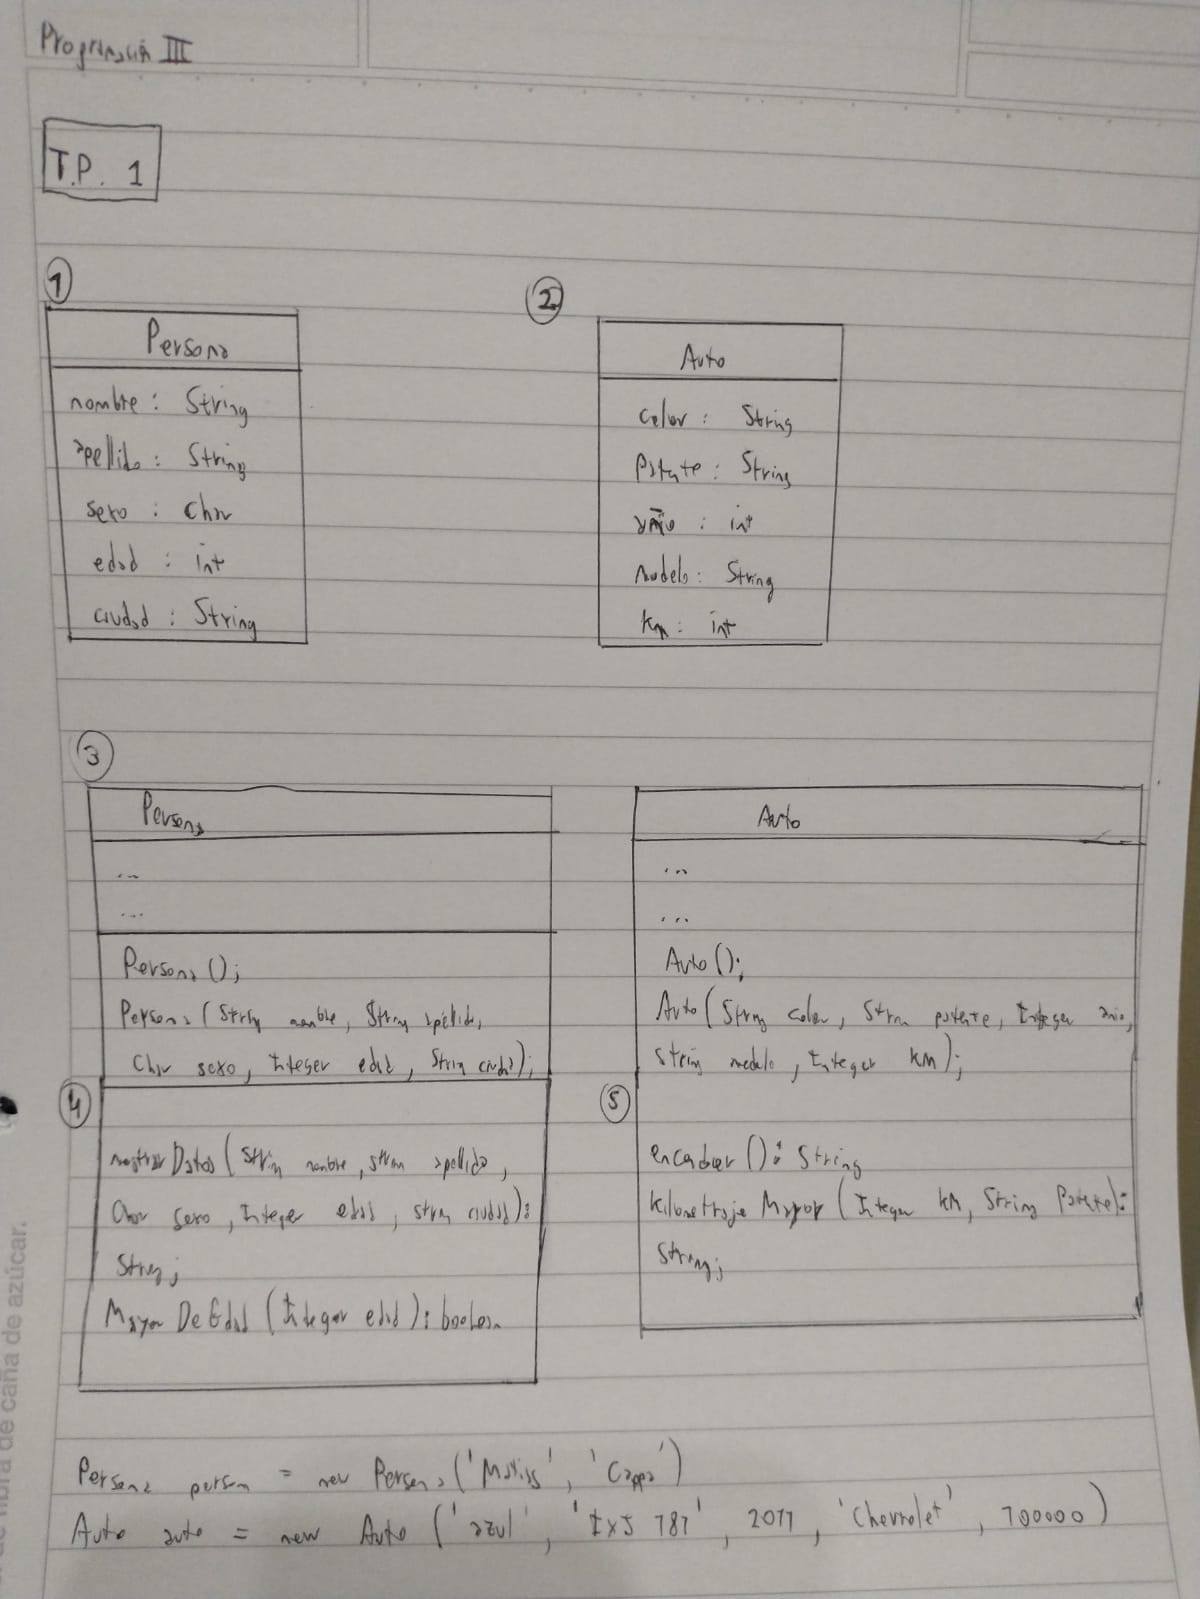 Programación III
T.P. 1
1
Persona
nombre : String
apellido : String
sexo : Char
edad : int
ciudad : String
2
Auto
color : String
patente : String
año : int
modelo : String
km : int
3
Persona
...
...
Persona();
Persona (String nombre, String apellido,
Char sexo, Integer edad, String ciudad);
4
mostrar Datos (String nombre, String apellido,
Char sexo, Integer edad, String ciudad):
String;
Mayor De Edad (Integer edad): boolean
Auto
...
...
Auto();
Auto (String color, String patente, Integer año,
String modelo, Integer km);
5
encender (): String
kilometraje Mayor (Integer km, String patente):
String;
Persona person = new Persona ('Matias', 'Cappa')
Auto auto = new Auto ('azul', 'IXJ 787', 2011, 'Chevrolet', 100000)
de fibra de caña de azúcar.